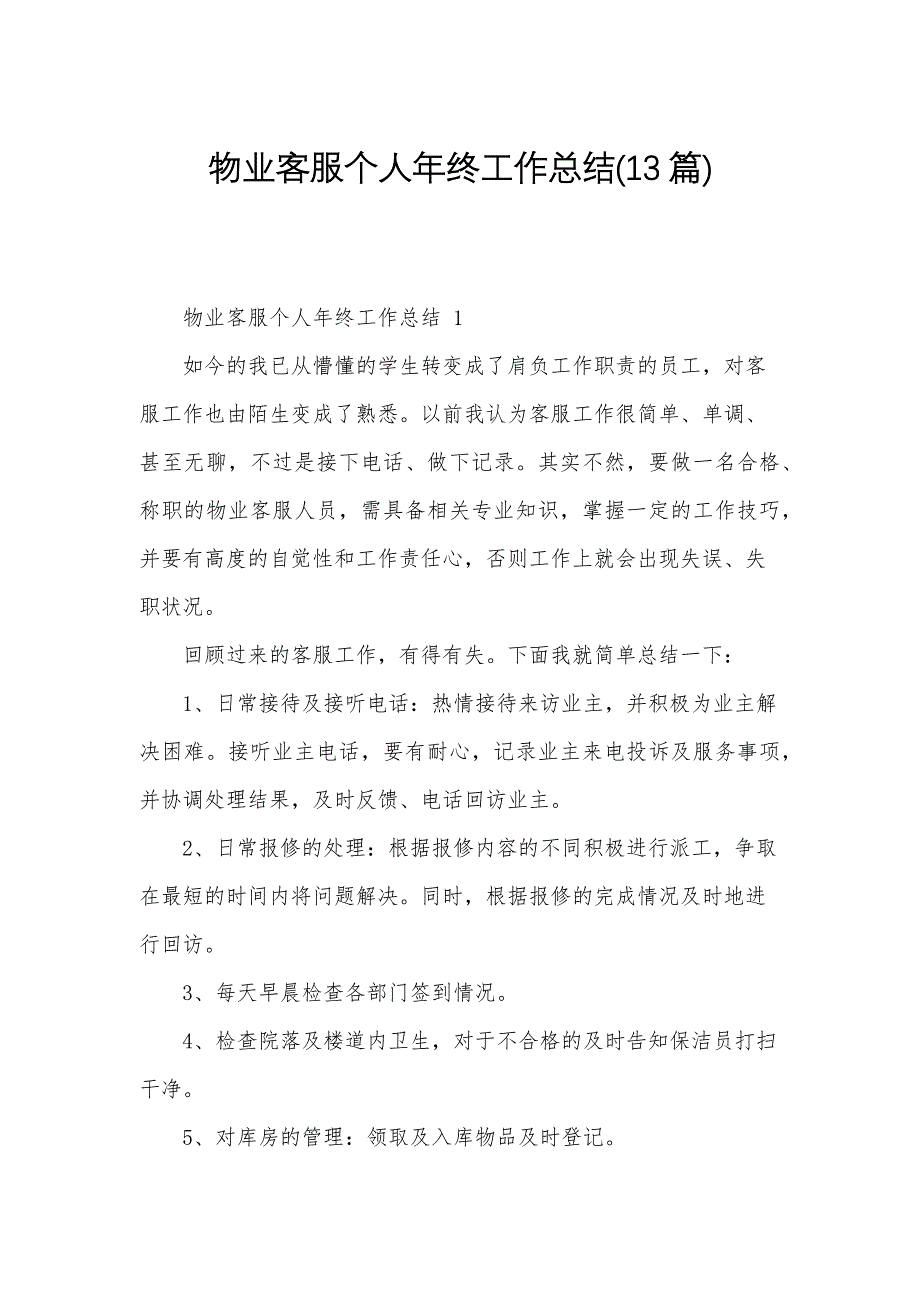 物业客服个人年终工作总结(13篇)
物业客服个人年终工作总结 1
如今的我已从懵懂的学生转变成了肩负工作职责的员工，对客
服工作也由陌生变成了熟悉。以前我认为客服工作很简单、单调、
甚至无聊，不过是接下电话、做下记录。其实不然，要做一名合格、
称职的物业客服人员，需具备相关专业知识，掌握一定的工作技巧，
并要有高度的自觉性和工作责任心，否则工作上就会出现失误、失
职状况。
回顾过来的客服工作，有得有失。下面我就简单总结一下：
1、日常接待及接听电话：热情接待来访业主，并积极为业主解
决困难。接听业主电话，要有耐心，记录业主来电投诉及服务事项，
并协调处理结果，及时反馈、电话回访业主。
2、日常报修的处理：根据报修内容的不同积极进行派工，争取
在最短的时间内将问题解决。同时，根据报修的完成情况及时地进
行回访。
3、每天早晨检查各部门签到情况。
4、检查院落及楼道内卫生，对于不合格的及时告知保洁员打扫
干净。
5、对库房的管理：领取及入库物品及时登记。